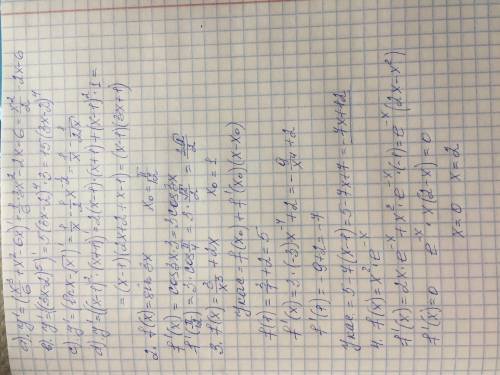 a) y' = (x³/6 + x² - 6x)' = 1/6 · 3x² - 2x - 6 = x²/2 - 2x - 6
b) y' = ((3x-2)⁵)' = 5(3x-2)⁴ · 3 = 15(3x-2)⁴
c) y' = (lnx - √x)' = 1/x - 1/2 x^(-1/2) = 1/x - 1/(2√x)
d) y' = ((x-1)²(x+1))' = 2(x-1)·(x+1) + (x-1)²·1 =
= (x-1)(2x+2+x-1) = (x-1)(3x+1)
2. f(x) = sin3x x₀ = π/12
f'(x) = cos3x·3 = 3cos3x
f'(π/12) = 3·cos π/4 = 3·√2/2 = 3√2/2
3. f(x) = 3/x³ + 2x x₀ = 1
y кас = f(x₀) + f'(x₀)(x-x₀)
f(1) = 3/1 + 2 = 5
f'(x) = 3·(-3)x⁻⁴ + 2 = -9/x⁴ + 2
f'(1) = -9+2 = -7
y кас = 5-7(x-1) = 5-7x+7 = -7x+12
4. f(x) = x²·e^(-x)
f'(x) = 2x·e^(-x) + x²·e^(-x)·(-1) = e^(-x)(2x-x²)
f'(x) = 0 e^(-x)·x(2-x) = 0
x=0 x=2